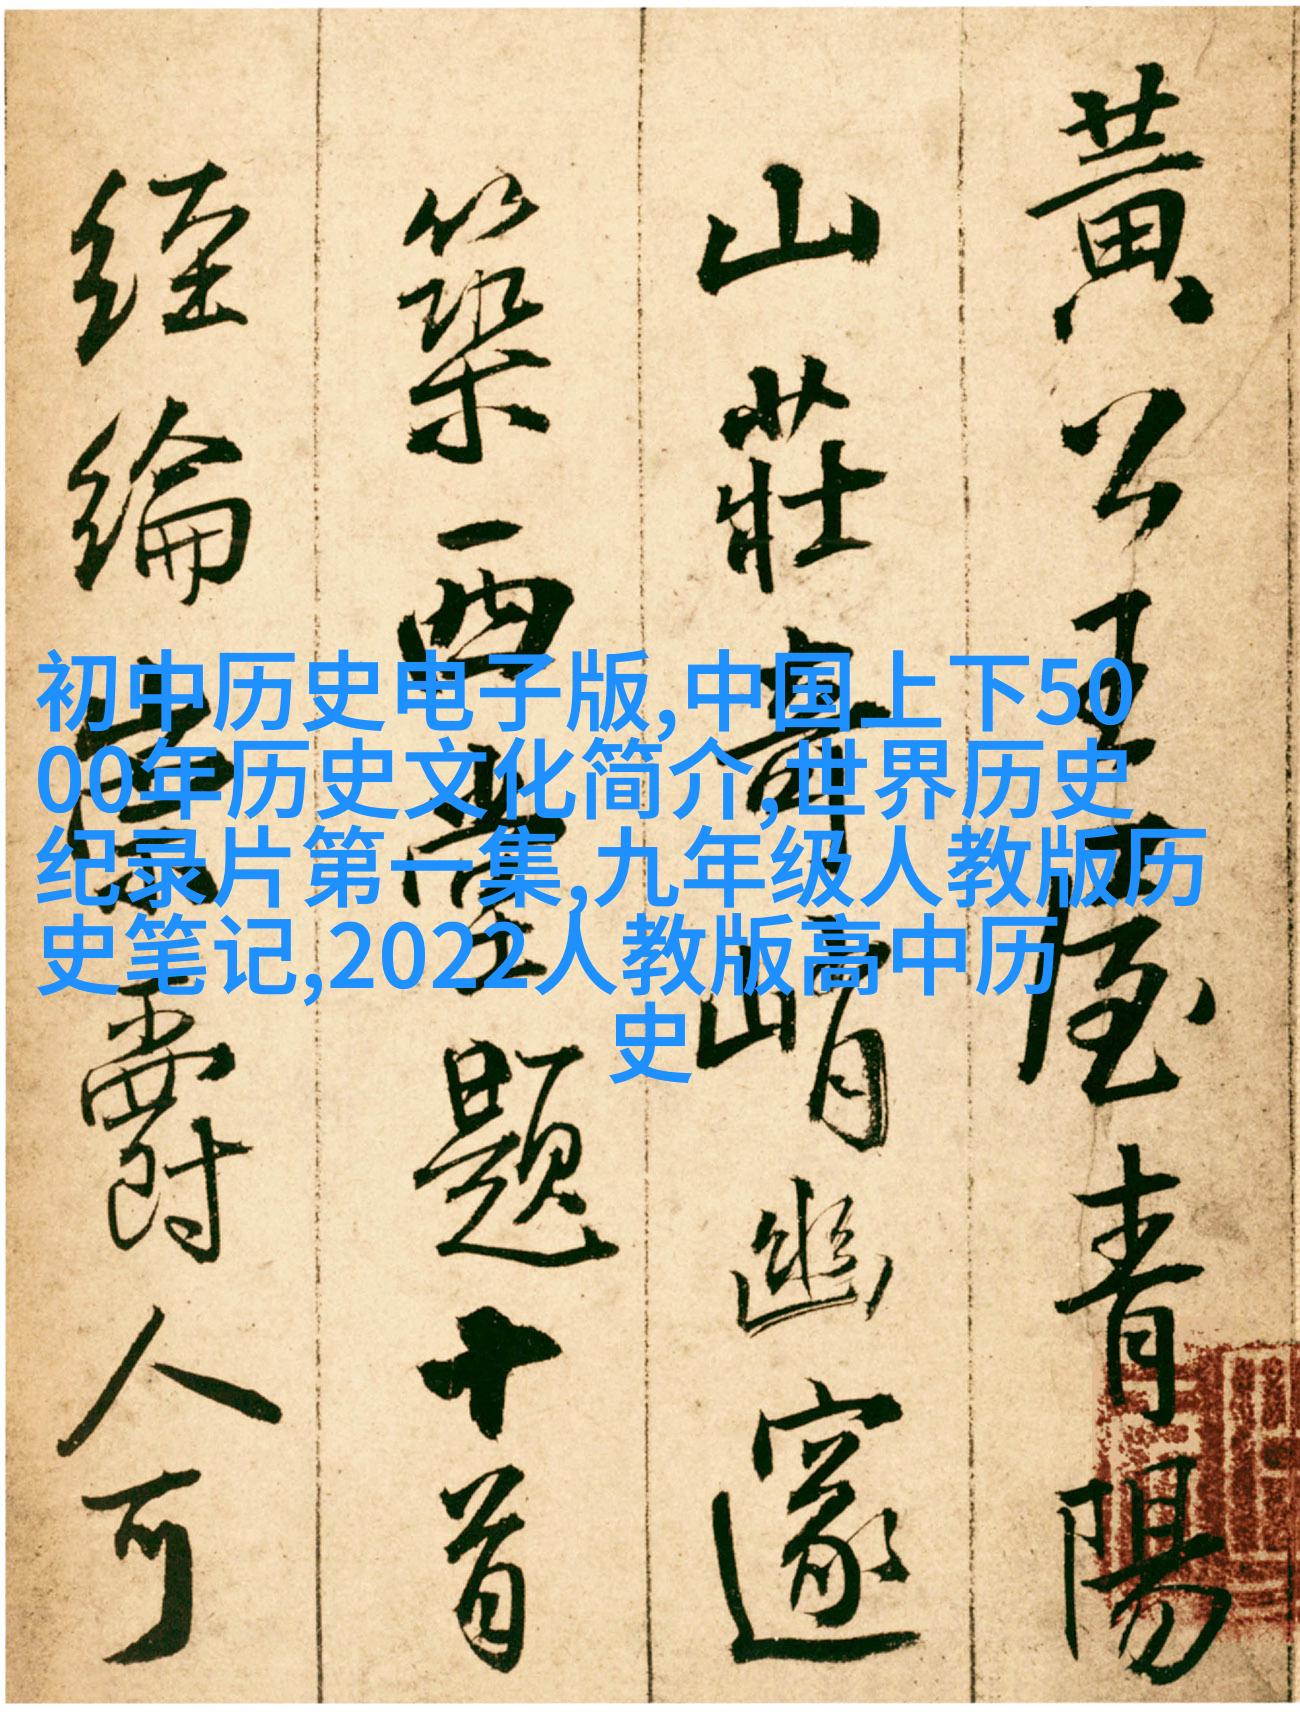 初中历史电子版,中国上下50
00年历史文化简介,世界历史
纪录片第一集,九年级人教版历
史笔记,2022人教版高中历
史
黃公王屋青陽
山莊奇峭幽邃
築西題十首
經綸爵人可